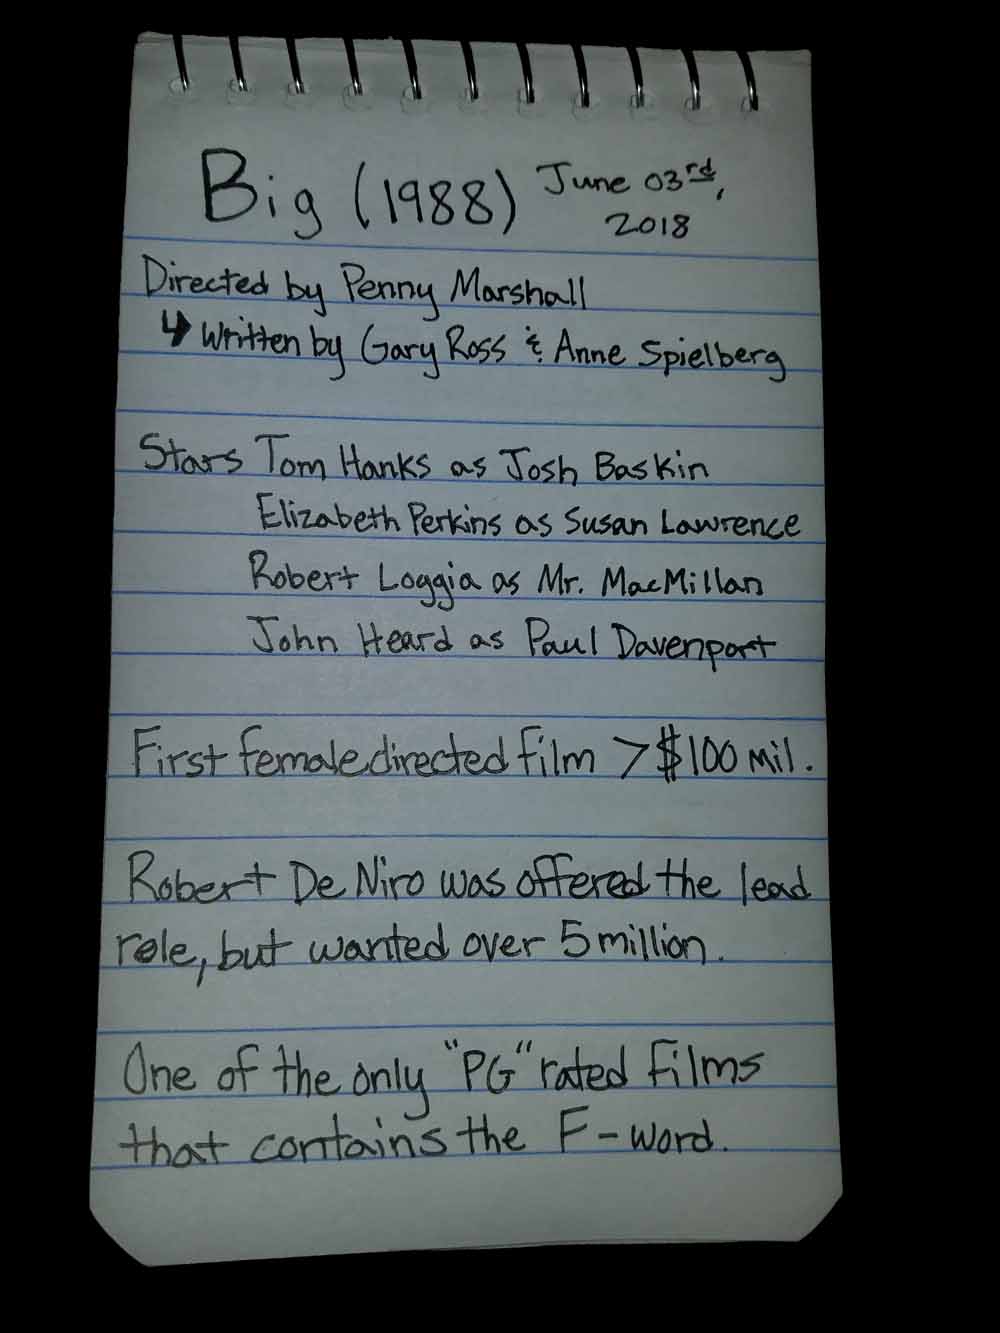 Big (1988) June 03rd,
2018
Directed by Penny Marshall
↳ Written by Gary Ross & Anne Spielberg
Stars Tom Hanks as Josh Baskin
Elizabeth Perkins as Susan Lawrence
Robert Loggia as Mr. MacMillan
John Heard as Paul Davenport
First female directed film > $100 mil.
Robert De Niro was offered the lead
role, but wanted over 5 million.
One of the only "PG" rated films
that contains the F-word.